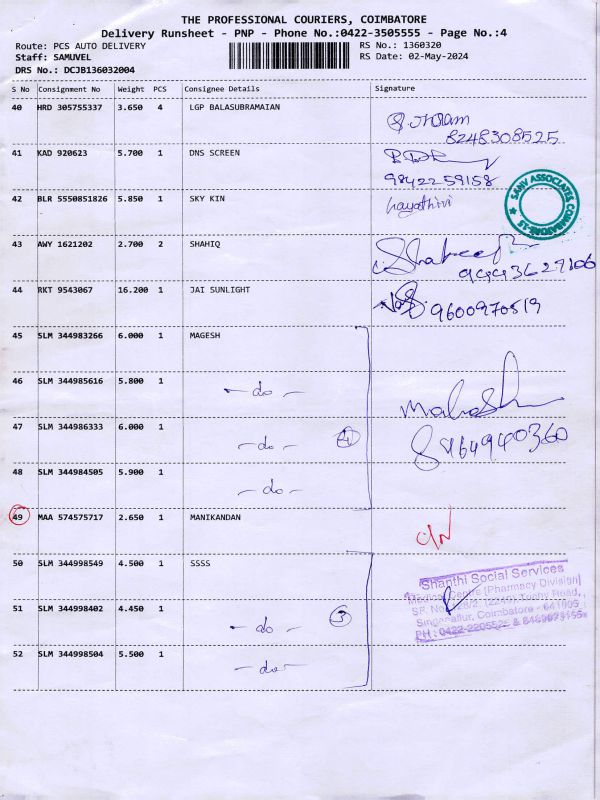 THE PROFESSIONAL COURIERS, COIMBATORE
Delivery Runsheet - PNP - Phone No.:0422-3505555 - Page No.:4
Route: PCS AUTO DELIVERY RS No.: 1360320
Staff: SAMUVEL RS Date: 02-May-2024
DRS No.: DCJB136032004
S No Consignment No Weight PCS Consignee Details Signature
40 HRD 305755337 3.650 4 LGP BALASUBRAMAIAN
8248308525
41 KAD 920623 5.700 1 DNS SCREEN
9842259158
42 BLR 5550851826 5.850 1 SKY KIN
SANV ASSOCIATES COIMBATORE-15
43 AWY 1621202 2.700 2 SHAHIQ
44 RKT 9543067 16.200 1 JAI SUNLIGHT
9600970519
45 SLM 344983266 6.000 1 MAGESH
46 SLM 344985616 5.800 1
- do -
47 SLM 344986333 6.000 1
- do - 4
48 SLM 344984505 5.900 1
- do -
49 MAA 574575717 2.650 1 MANIKANDAN
50 SLM 344998549 4.500 1 SSSS
Shanthi Social Services
Medical Centre [Pharmacy Division]
Singanallur, Coimbatore - 641005
51 SLM 344998402 4.450 1
- do - 3
52 SLM 344998504 5.500 1
- do -